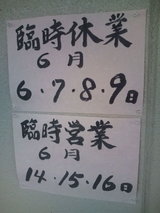 臨時休業
6月
6・7・8・9日
臨時営業
6月
14・15・16日